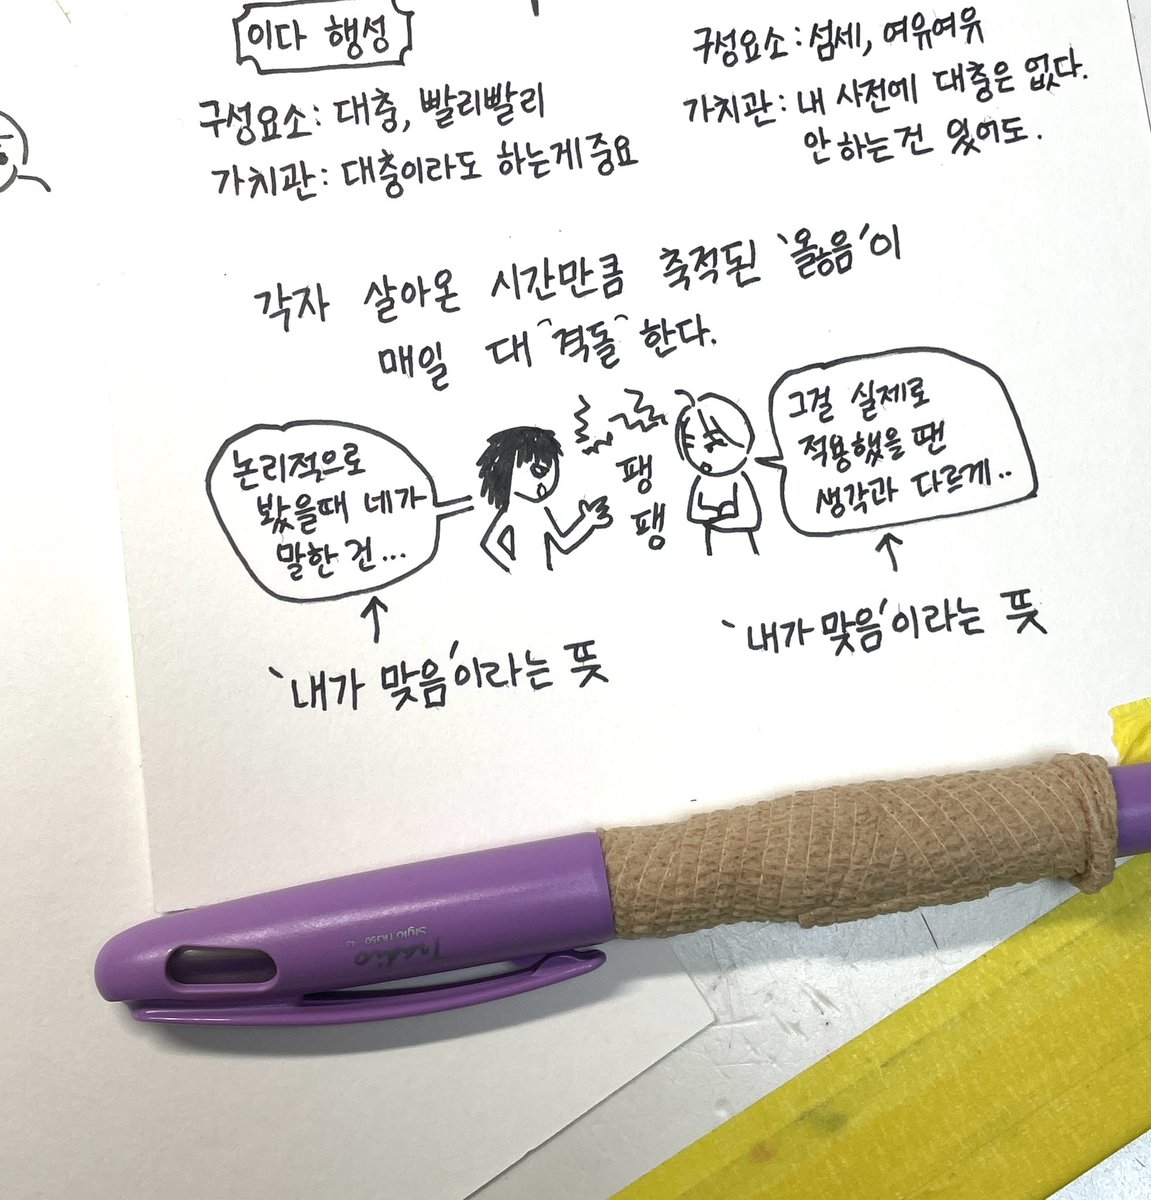 이다 행성
구성요소: 대충, 빨리빨리
가치관: 대충이라도 하는게 중요
구성요소: 섬세, 여유여유
가치관: 내 사전에 대충은 없다.
안 하는 건 있어도.
각자 살아온 시간만큼 축적된 '옳음'이
매일 대"격돌"한다.
논리적으로
봤을때 네가
말한 건...
팽
팽
그걸 실제로
적용했을 땐
생각과 다르게..
'내가 맞음'이라는 뜻
'내가 맞음'이라는 뜻
Tradio
Stylo TRJ50